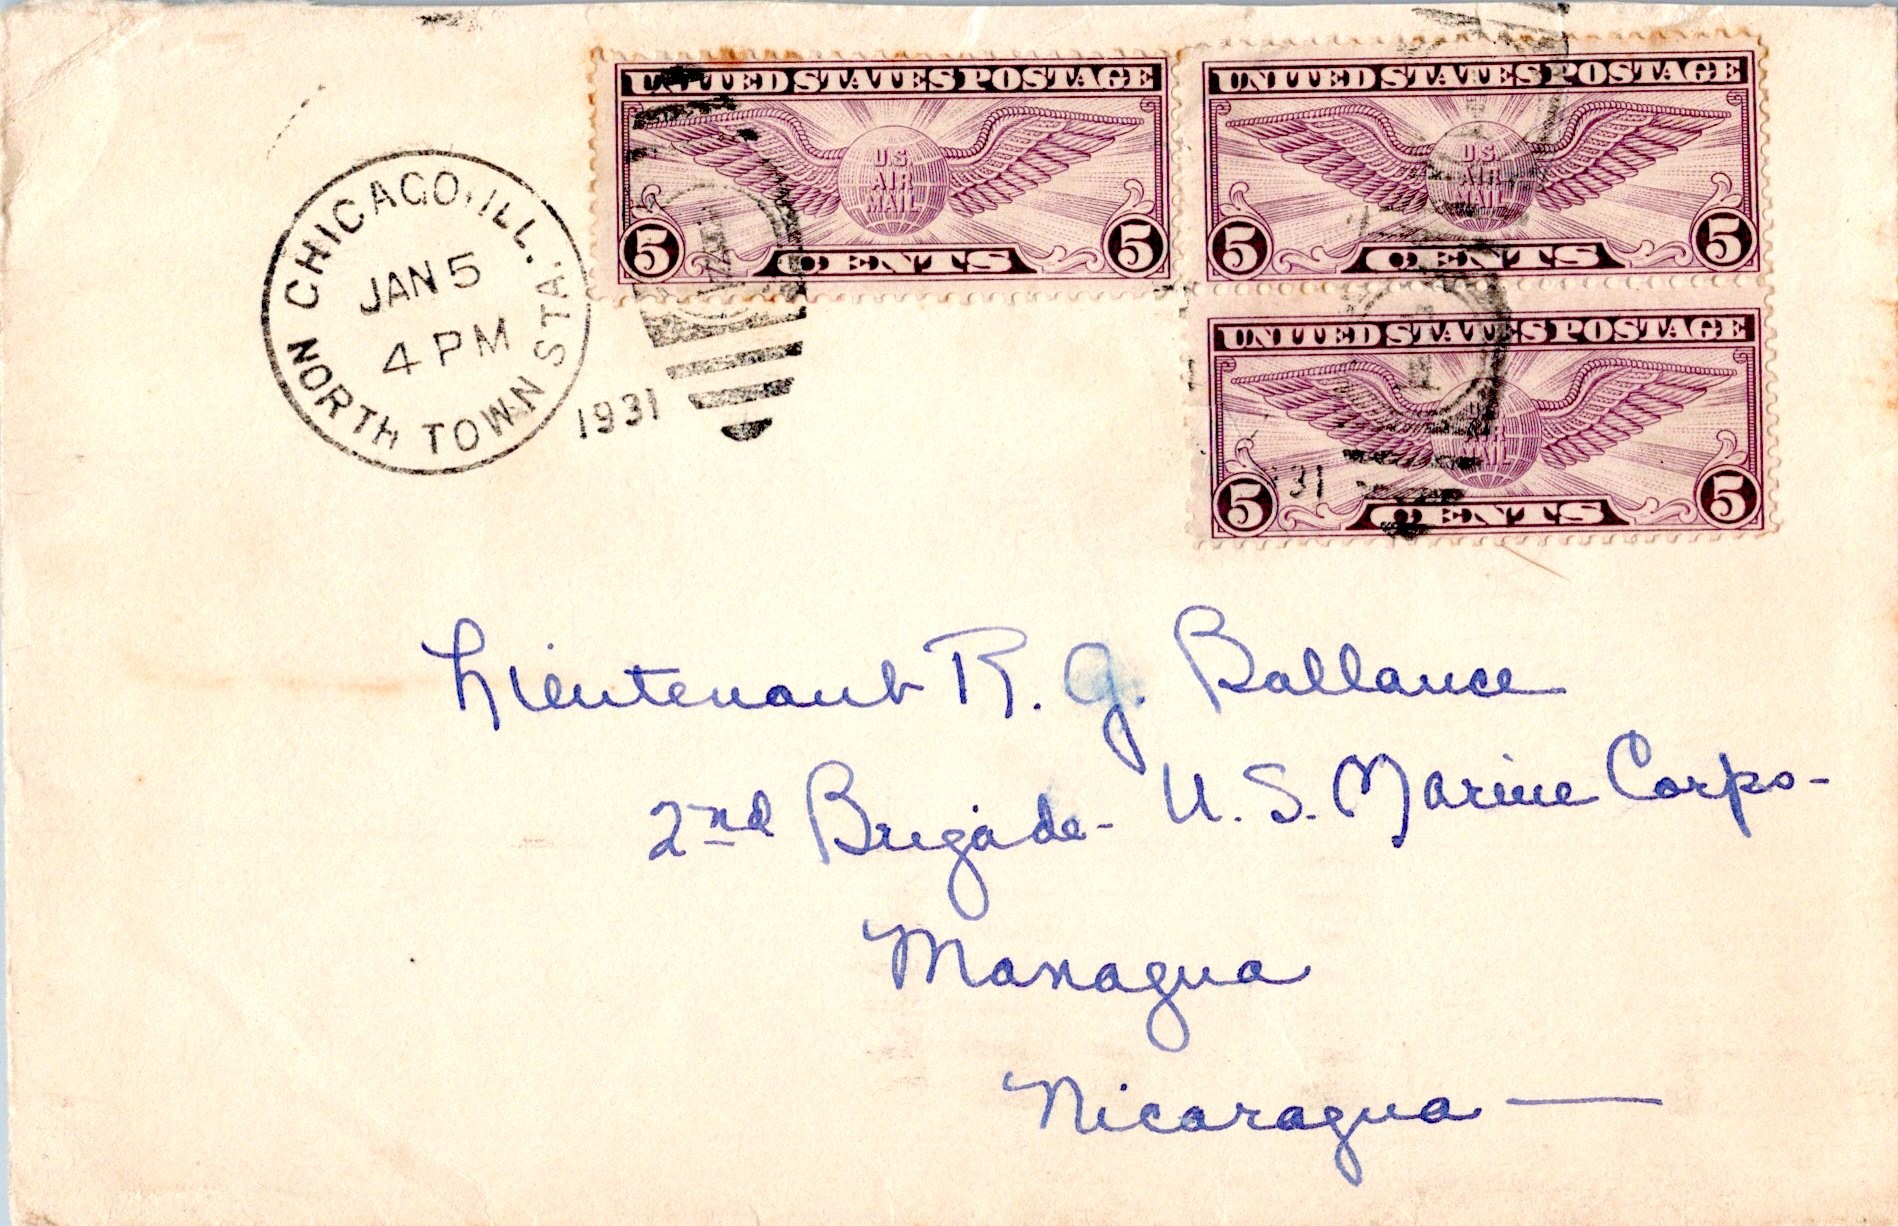 CHICAGO, ILL.
JAN 5
4 PM
NORTH TOWN STA.
1931
UNITED STATES POSTAGE
U.S.
AIR
MAIL
5 CENTS 5
UNITED STATES POSTAGE
U.S.
AIR
MAIL
5 CENTS 5
UNITED STATES POSTAGE
U.S.
AIR
MAIL
5 CENTS 5
31
Lieutenant R. G. Ballance
2nd Brigade - U. S. Marine Corps -
Managua
Nicaragua —